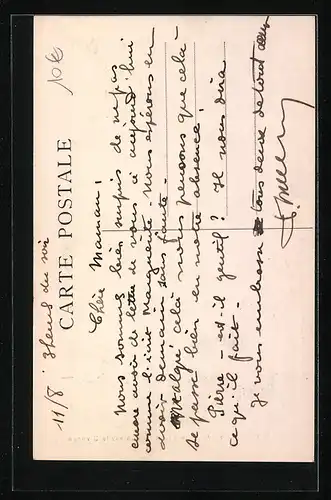 11/8 7 heures du soir
CARTE POSTALE
10€
Chère Maman,
Nous sommes bien surpris de n'pas
encore avoir de lettre de vous à aujourd'hui
comme l'écrit Marguerite. Nous espérons en
avoir demain sans faute.
Malgré celà nous pensons que celà
se passe bien en notre absence.
Pierre - est-il gentil? Il nous dira
ce qu'il fait.
Je vous embrasse tous deux de tout cœur